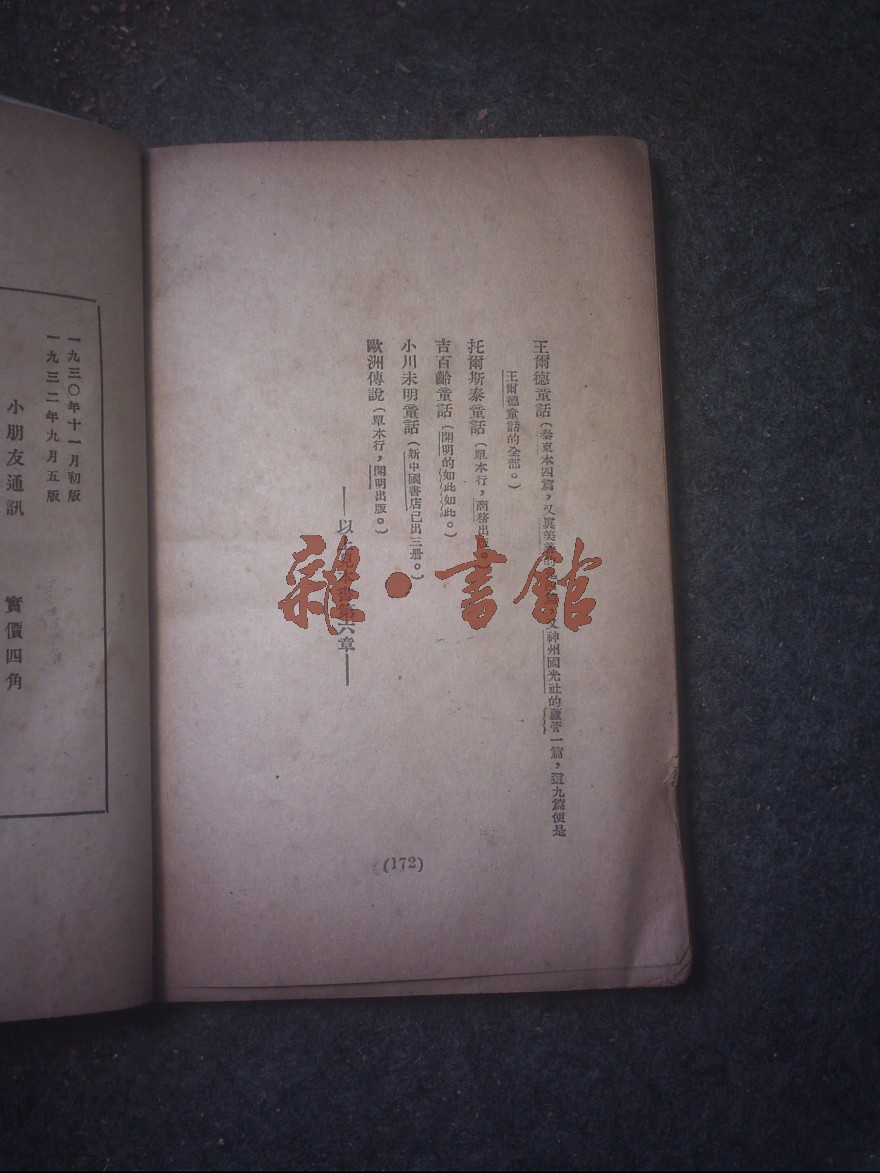 王爾德童話(泰東本四篇,又
神州國光社的蘆管一篇,這九篇便是
王爾德童話的全部。)
托爾斯泰童話(單本行,商務出版。)
吉百齡童話(開明的如此如此。)
小川未明童話(新中國書店已出三册。)
歐洲傳說(單本行,開明出版。)
——以上見本書第六章——
(172)
一九三〇年十一月初版
一九三二年九月五版
小朋友通訊 實價四角
雜·書館